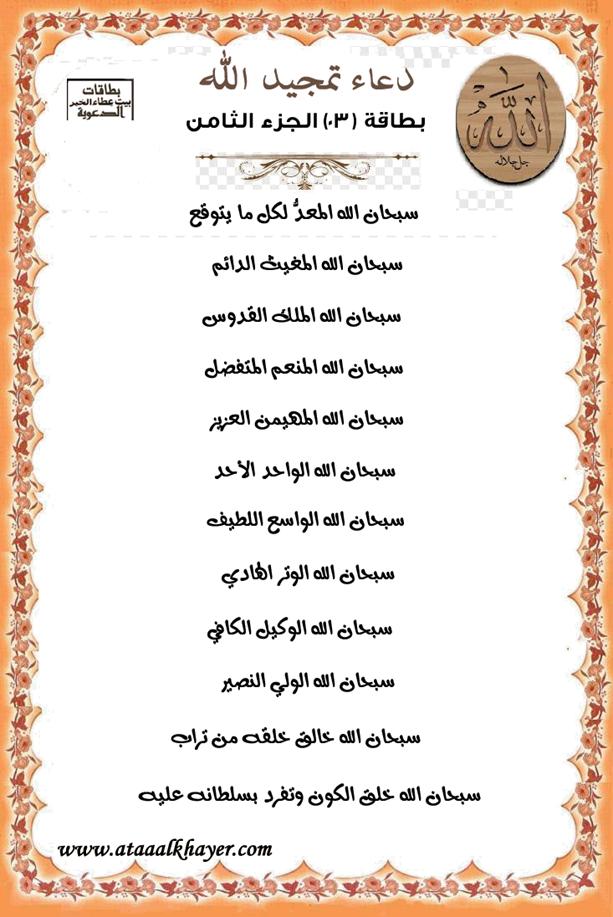 دعاء تمجيد الله
بطاقة (٠٣) الجزء الثامن
بطاقات
بيت عطاء الخير
الدعوية
الله
جل جلاله
سبحان الله المعدُّ لكل ما يتوقع
سبحان الله المغيث الدائم
سبحان الله الملك القدوس
سبحان الله المنعم المتفضل
سبحان الله المهيمن العزيز
سبحان الله الواحد الأحد
سبحان الله الواسع اللطيف
سبحان الله الوتر الهادي
سبحان الله الوكيل الكافي
سبحان الله الولي النصير
سبحان الله خالق خلقه من تراب
سبحان الله خلق الكون وتفرد بسلطانه عليه
www.ataaalkhayer.com